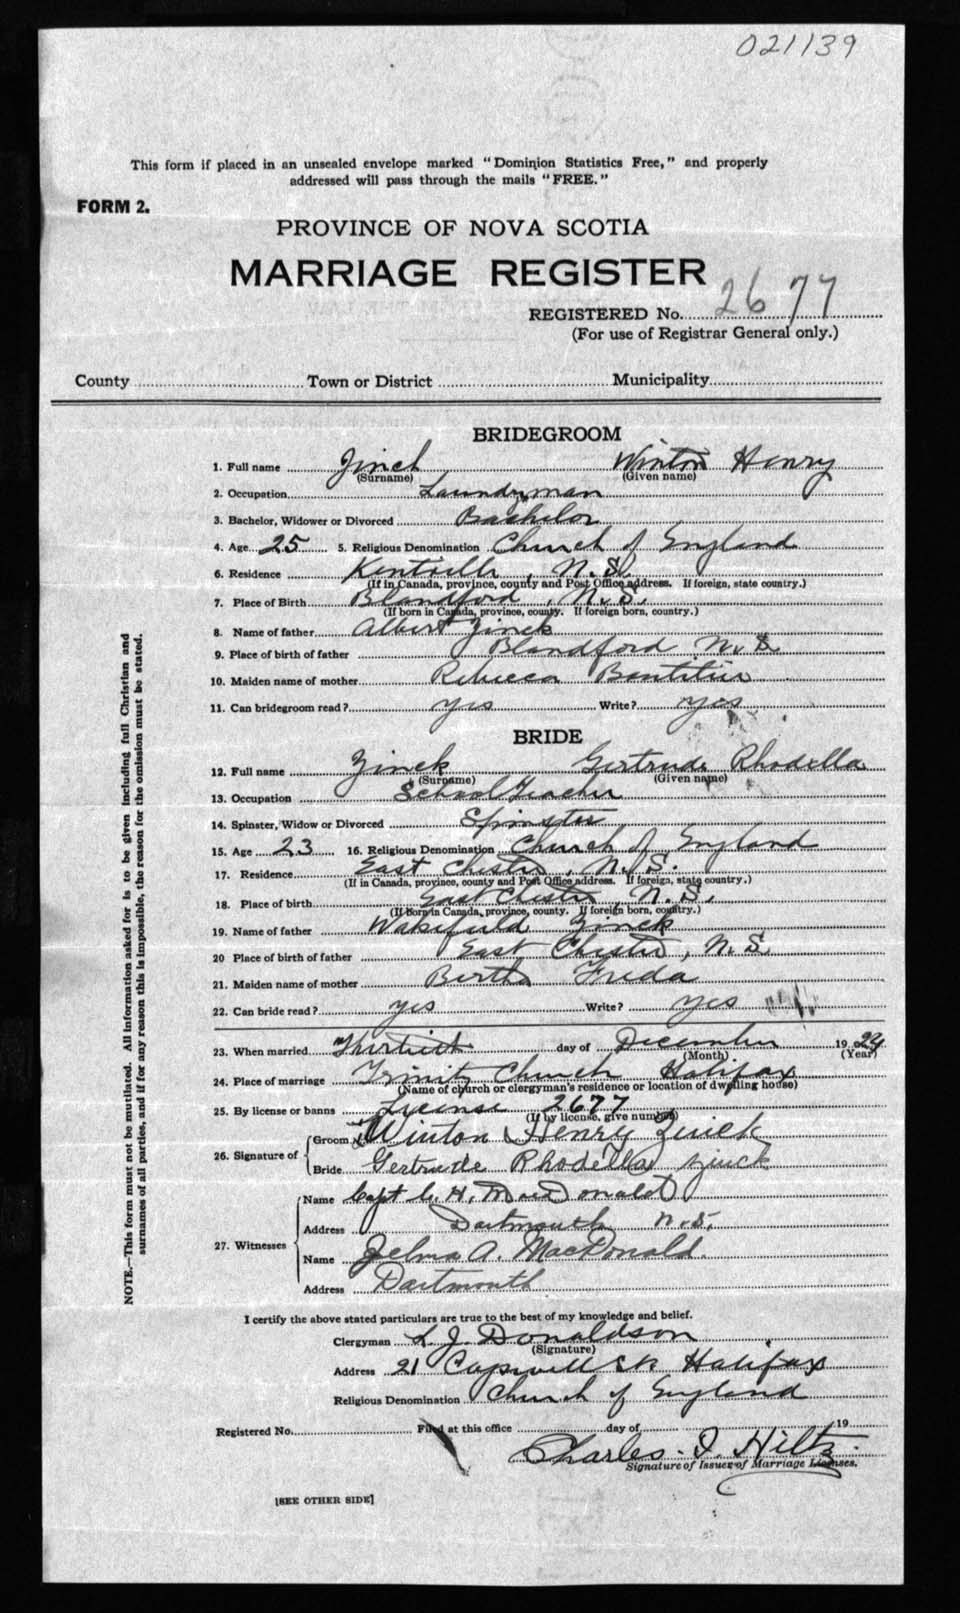 021139
This form if placed in an unsealed envelope marked "Dominion Statistics Free," and properly
addressed will pass through the mails "FREE."
FORM 2.
PROVINCE OF NOVA SCOTIA
MARRIAGE REGISTER
REGISTERED No. 2677
(For use of Registrar General only.)
County Town or District Municipality
BRIDEGROOM
1. Full name Zinck Winton Henry
(Surname) (Given name)
2. Occupation Laundryman
3. Bachelor, Widower or Divorced Bachelor
4. Age 25 5. Religious Denomination Church of England
6. Residence Kentville, N.S.
(If in Canada, province, county and Post Office address. If foreign, state country.)
7. Place of Birth Blandford, N.S.
(If born in Canada, province, county. If foreign born, country.)
8. Name of father Albert Zinck
9. Place of birth of father Blandford N.S.
10. Maiden name of mother Rebecca
11. Can bridegroom read? yes Write? yes
BRIDE
12. Full name Zinck Gertrude Rhodella
(Surname) (Given name)
13. Occupation School Teacher
14. Spinster, Widow or Divorced Spinster
15. Age 23 16. Religious Denomination Church of England
17. Residence East Chester, N.S.
(If in Canada, province, county and Post Office address. If foreign, state country.)
18. Place of birth East Chester, N.S.
(If born in Canada, province, county. If foreign born, country.)
19. Name of father Wakefield Zinck
20 Place of birth of father East Chester, N.S.
21. Maiden name of mother Bertha Freda
22. Can bride read? yes Write? yes
23. When married Thirtieth day of December 19
(Month) (Year)
24. Place of marriage Trinity Church Halifax
(Name of church or clergyman's residence or location of dwelling house)
25. By license or banns License 2677
(If by license, give number)
26. Signature of
Groom Winton Henry Zinck
Bride Gertrude Rhodella Zinck
27. Witnesses
Name Capt C. H. MacDonald
Address Dartmouth N.S.
Name A. MacDonald.
Address Dartmouth
I certify the above stated particulars are true to the best of my knowledge and belief.
Clergyman L. J. Donaldson
(Signature)
Address 21 St. Halifax
Religious Denomination Church of England
Registered No. Filed at this office day of 19
Charles. I. Hiltz.
Signature of Issuer of Marriage Licenses.
[SEE OTHER SIDE]
NOTE.—This form must not be mutilated. All information asked for is to be given including full Christian and
surnames of all parties, and if for any reason this is impossible, the reason for the omission must be stated.